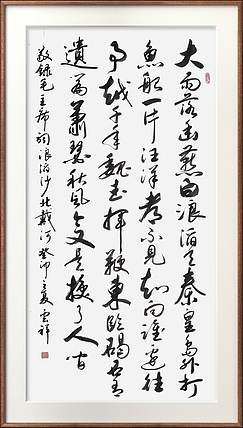 大雨落幽燕白浪滔天秦皇岛外打
魚船一片汪洋都不見知向誰边往
事越千年魏武揮鞭東临碣石有
遺篇蕭瑟秋風今又是換了人间
敬録毛主席詞浪淘沙北戴河 癸卯立夏 雲祥